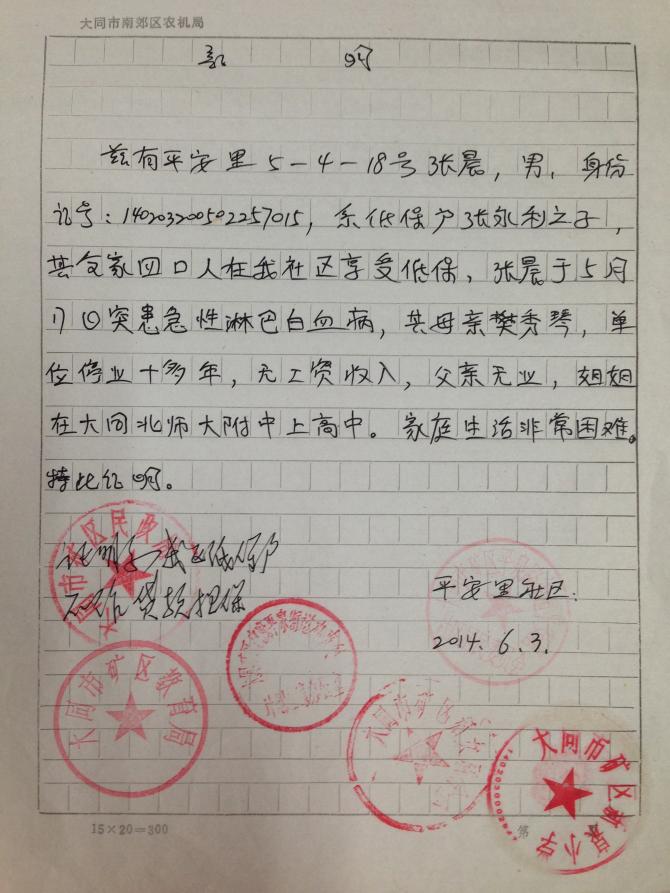 大同市南郊区农机局
证 明
兹有平安里5-4-18号张晨，男，身份
证号：140203200502257015，系低保户张永利之子，
其全家四口人在我社区享受低保，张晨于5月
17日突患急性淋巴白血病，其母亲樊秀琴，单
位停业十多年，无工资收入，父亲无业，姐姐
在大同北师大附中上高中。家庭生活非常困难。
特此证明。
大同市矿区民政局
证明为我区低保户
不作贷款担保
平安里社区：
2014.6.3.
大同市矿区教育局
大同市矿区
小学
15×20=300
第